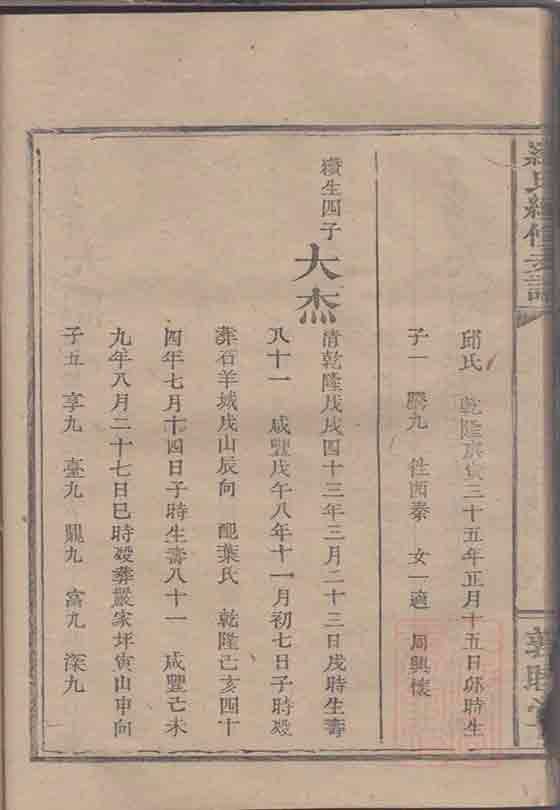 氏續修支譜
邱氏 乾隆庚寅三十五年正月十五日卯時生
子一 勝九 徃西秦 女一適 周興懷
續生四子
大杰
清乾隆戊戌四十三年三月二十三日戌時生壽
八十一 咸豐戊午八年十一月初七日子時歿
葬石羊城戌山辰向 配葉氏 乾隆己亥四十
四年七月十四日子時生壽八十一 咸豐己未
九年八月二十七日巳時歿葬嚴家坪寅山申向
子五 享九 臺九 龍九 富九 深九
敦睦堂